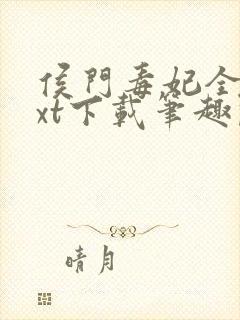 侯門毒妃全
xt下載筆趣
晴月